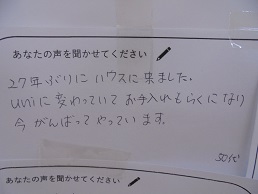 あなたの声を聞かせてください
27年ぶりに ハウスに来ました。
uniに変わっていて お手入れもらくになり
今 がんばって やっています。
50代
あなたの声を聞かせてください